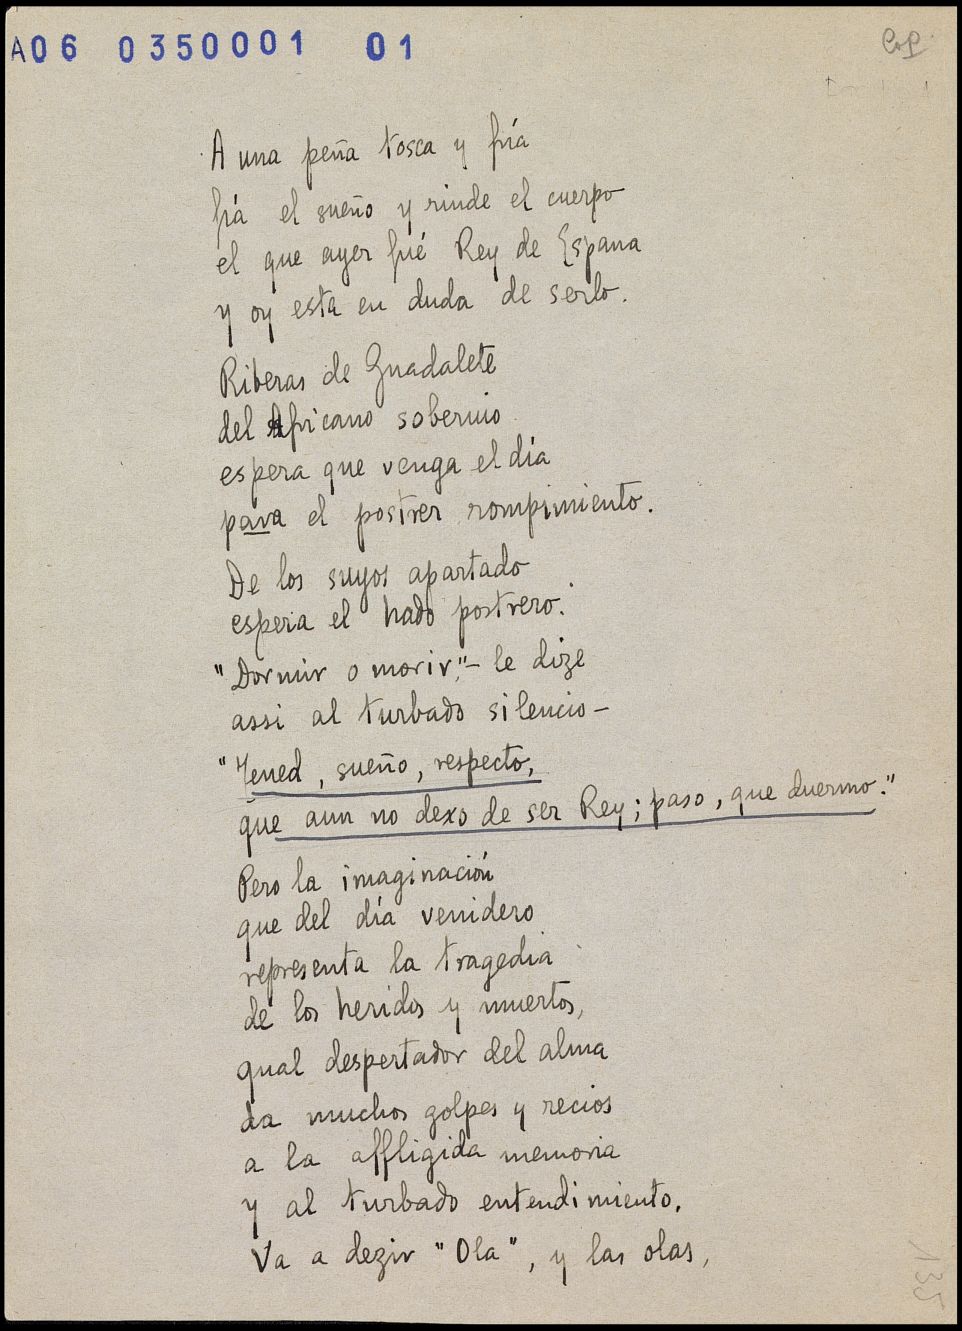 A06 0350001 01
Cop
A una peña tosca y fría
fía el sueño y rinde el cuerpo
el que ayer fué Rey de Espana
y oy esta en duda de serlo.
Riberas de Guadalete
del Africano sobervio
espera que venga el día
para el postrer rompimiento.
De los suyos apartado
espera el hado postrero.
"Dormir o morir," - le dize
assi al turbado silencio -
"Tened, sueño, respecto,
que aun no dexo de ser Rey; paso, que duermo."
Pero la imaginación
que del día venidero
representa la tragedia
de los heridos y muertos,
qual despertador del alma
da muchos golpes y recios
a la affligida memoria
y al turbado entendimiento.
Va a dezir "Ola", y las olas,
135